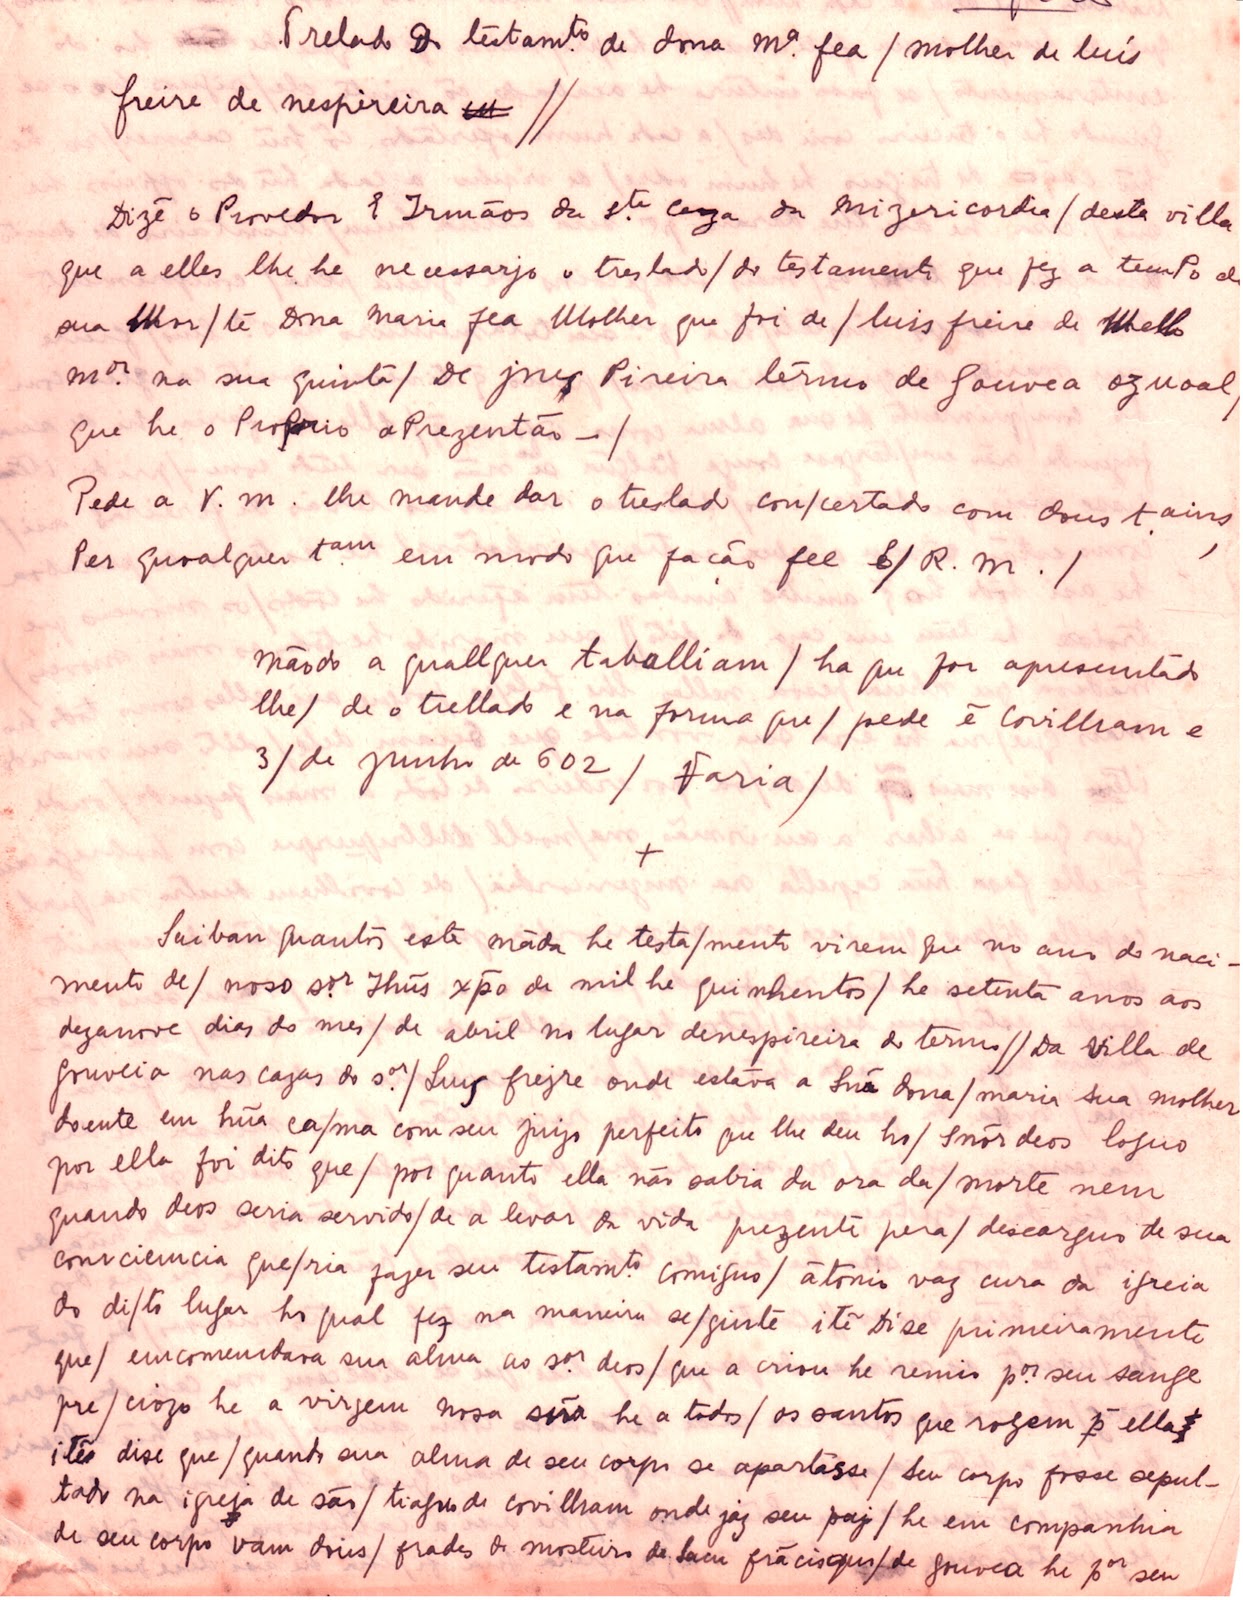 Trelado do testam.to de dona m.a fea / molher de luis
freire de nespereira //
Dizẽ o Provedor e Irmãos da s.ta caza da Mizericordia / desta villa
que a elles lhe he necessarjo o treslado / do testamento que fez a temPo de
sua Mor / te Dona Maria fea Molher que foi de / luis freire de Mello
m.or na sua quinta / De Pireira termo de Gouvea oqual /
que he o Proprio aPrezentão - /
Pede a V. m. lhe mande dar o treslado con / certado com dous t.ains,
Per qualquer tam em modo que fação fee E / R. M. /
Mãodo a quallquer taballiam / ha que for apresentado
lhe / de o trellado e na forma que / pede ẽ Covilham e
3 / de junho de 602 / Faria /
+
Saiban quantos este mãda he testa / mento virem que no ano do naci -
mento de / noso s.or Jhũs xp̃o de mil he quinhentos / he setenta anos aos
dezanove dias do mes / de abril no lugar denespireira do termo // Da Villa de
gouveia nas cazas do s.or / Luis frejre onde estava a Snã dona / maria sua molher
doente em hũa ca / ma com seu juizo perfeito que lhe deu ho / Snõr deos loguo
por ella foi dito que / por quanto ella não sabia da ora da / morte nem
quando deos seria servido / de a levar da vida prezente pera / descarguo de sua
conciencia que / ria fazer seu testamto comiguo / ãtonio vaz cura da igreia
do di / to lugar ho qual fez na maneira se / guinte itẽ Dise primeiramente
que / emcomendava sua alma ao s.or deos / que a criou he remio p.or seu sange
pre / ciozo he a virgem nosa snra he a todos / os santos que rogem p̃ ella
itẽ dise que / quando sua alma de seu corpo se apartasse / Seu corpo fosse sepul-
tado na igreja de são / tiaguo de covilham onde jaz seu paj / he em companhia
de seu corpo vam dous / frades do mosteiro de Sam frãcisquo / de gouvea he p.or seu